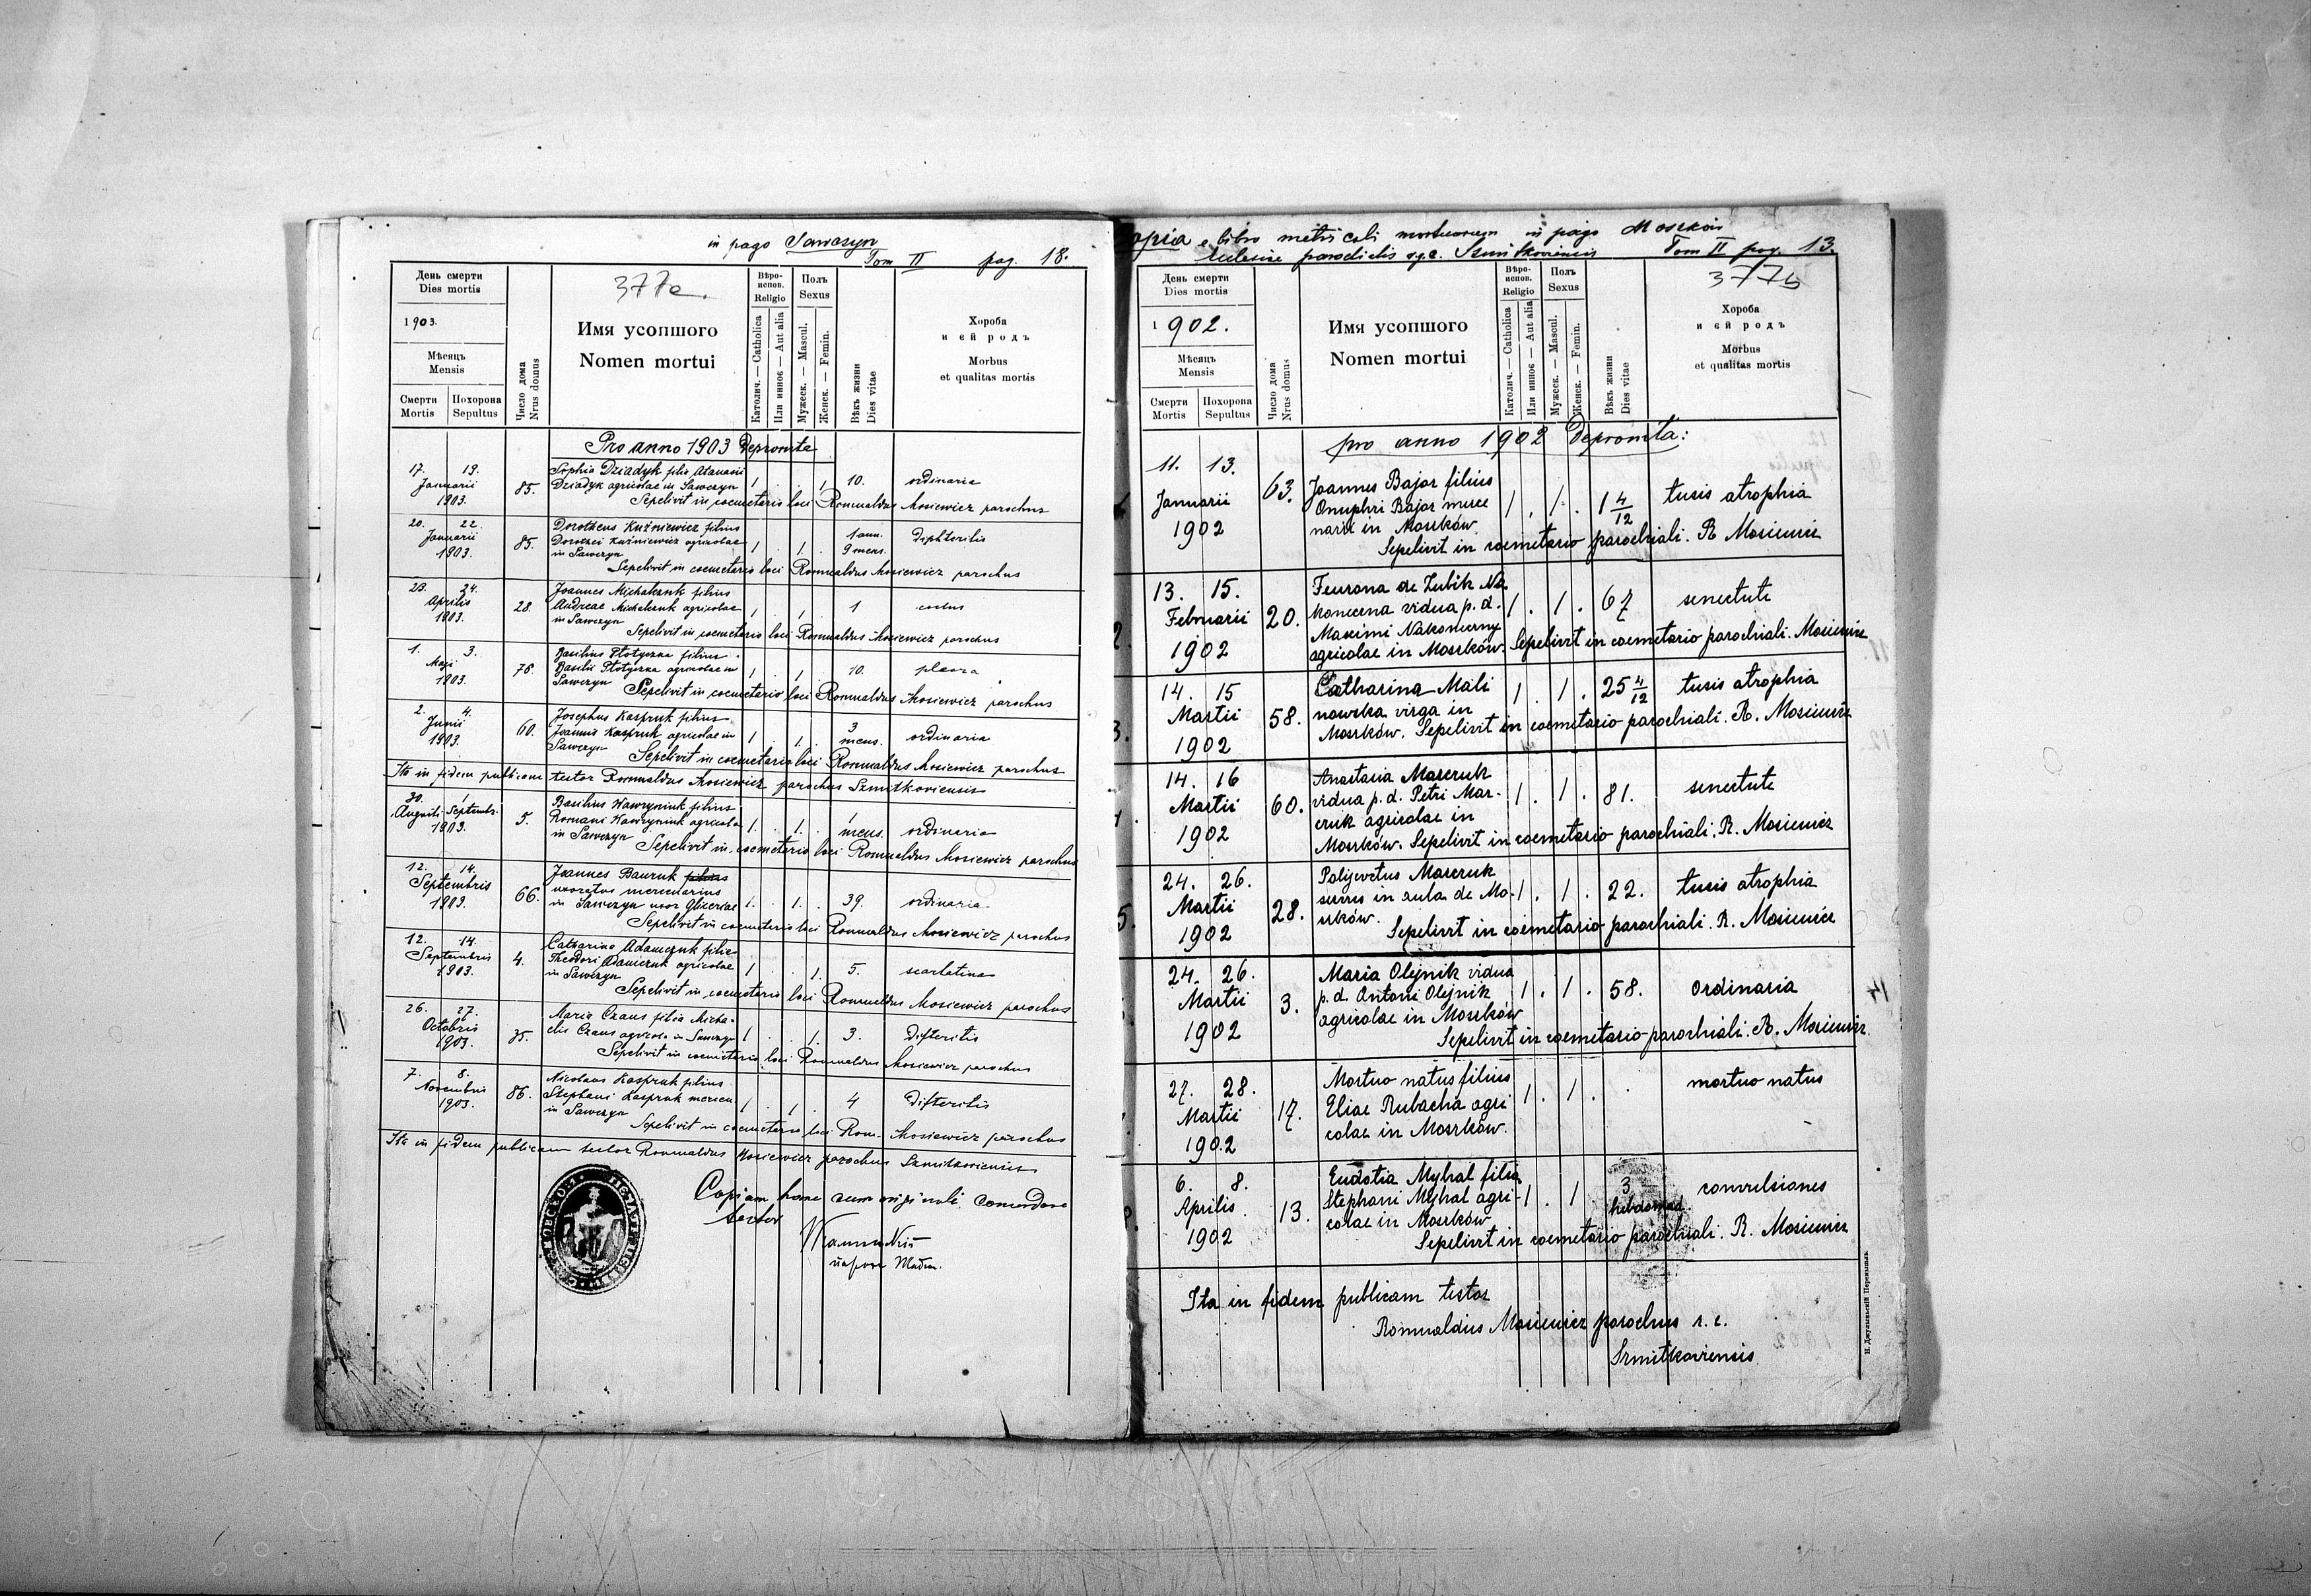 in pago Sawczyn
Tom II pag. 18.
День смерти
Dies mortis
1903.
Мѣсяць
Mensis
Смерти
Mortis
Похорона
Sepultus
Число дома
Nrus domus
377a.
Имя усопшого
Nomen mortui
Вѣро-
испов.
Religio
Католич. — Catholica
Или инноє — Aut alia
Полъ
Sexus
Мужеск. — Mascul.
Женск. — Femin.
Вѣкъ жизни
Dies vitae
Хороба
и єй родъ
Morbus
et qualitas mortis
Pro anno 1903 Depromta
17. 19.
Januarii
1903.
85.
Sophia Dziadyk filia Atanasii
Dziadyk agricolae in Sawczyn
1 . . 1 10. ordinaria
Sepelivit in coemeterio loci Romualdus Mosiewicz parochus
20. 22.
Januarii
1903.
85.
Dorotheus Kuźniewicz filius
Dorothei Kuźniewicz agricolae
in Sawczyn
1 . 1 . 1 ann.
9 mens.
Diphteritis
Sepelivit in coemeterio loci Romualdus Mosiewicz parochus
23. 24.
Aprilis
1903.
28.
Joannes Michalczuk filius
Andreae Michalczuk agricolae
in Sawczyn
1 . 1 . 1
Sepelivit in coemeterio loci Romualdus Mosiewicz parochus
1. 3.
Maji
1903.
78.
Basilius Płotyczka filius
Basilii Płotyczka agricolae in
Sawczyn
1 . 1 . 10.
Sepelivit in coemeterio loci Romualdus Mosiewicz parochus
2. 4.
Junii
1903.
60.
Josephus Kaspruk filius
Joannis Kaspruk agricolae in
Sawczyn
1 . 1 . 3
mens.
ordinaria
Sepelivit in coemeterio loci Romualdus Mosiewicz parochus
Ita in fidem publicam testor Romualdus Mosiewicz parochus Szmitkoviensis
30. 1.
Augusti Septembr.
1903.
5.
Basilius Wawryniuk filius
Romani Wawryniuk agricola
in Sawczyn
1. . 1. . 1
mens.
ordinaria
Sepelivit in coemeterio loci Romualdus Mosiewicz parochus
12. 14.
Septembris
1903.
66.
Joannes Bauruk filius
uxoratus mercenarius
in Sawczyn uxor Glizeriae
1. . 1. . 39. ordinaria
Sepelivit in coemeterio loci Romualdus Mosiewicz parochus
12. 14.
Septembris
1903.
4.
Catharina Adamczuk filia
Theodori Adamczuk agricolae
in Sawczyn
1 . . 1. 5. scarlatina
Sepelivit in coemeterio loci Romualdus Mosiewicz parochus
26. 27.
Octobris
1903.
35.
Maria Czaus filia Micha-
elis Czaus agricola in Sawczyn
1 . . 1. 3. Difteritis
Sepelivit in coemeterio loci Romualdus Mosiewicz parochus
7. 8.
Novembris
1903.
86.
Nicolaus Kaspruk filius
Stephani Kaspruk mercen
in Sawczyn
1 . 1 . 4 Difteritis
Sepelivit in coemeterio loci Rom. Mosiewicz parochus
Ita in fidem publicam testor Romualdus Mosiewicz parochus Szmitkoviensis
Copiam hanc cum originali concordare
testor
Copia e libro metricali mortuorum in pago Moszków
Eclesiae parochialis r.g.c. Szmitkoviensis Tom II pag. 13.
День смерти
Dies mortis
1902.
Мѣсяць
Mensis
Смерти
Mortis
Похорона
Sepultus
Число дома
Nrus domus
Имя усопшого
Nomen mortui
Вѣро-
испов.
Religio
Католич. — Catholica
Или инноє — Aut alia
Полъ
Sexus
Мужеск. — Mascul.
Женск. — Femin.
Вѣкъ жизни
Dies vitae
377b
Хороба
и єй родъ
Morbus
et qualitas mortis
pro anno 1902 Depromta:
11. 13.
Januarii
1902
63.
Joannes Bajor filius
Onuphri Bajor merce
narii in Moszków
1 . 1 . 1 4/12 tusis atrophia
Sepelivit in coemetario parochiali. R Mosiewicz
2.
13. 15.
Februarii
1902
20.
Feurona de Zubik Na
koneczna vidua p. d.
Maximi Nakoneczny
agricolae in Moszków.
1 . 1 . 67 senectute
Sepelivit in coemetario parochiali. Mosiewicz
3.
14. 15
Martii
1902
58.
Catharina Mali
nowska virga in
Moszków.
1 . 1 . 25 4/12 tusis atrophia
Sepelivit in coemetario parochiali. R. Mosiewicz
14. 16
Martii
1902
60.
Anastasia Marczuk
vidua p. d. Petri Mar-
czuk agricolae in
Moszków.
1 . 1 . 81. senectute
Sepelivit in coemetario parochiali. R. Mosiewicz
5.
24. 26.
Martii
1902
28.
Polijevctus Marczuk
servus in aula de Mo-
szków.
1 . 1 . 22. tusis atrophia
Sepelivit in coemetario parochiali. R. Mosiewicz
24. 26.
Martii
1902
3.
Maria Olejnik vidua
p. d. Antoni Olejnik
agricolae in Moszków
1 . 1 . 58. ordinaria
Sepelivit in coemetario parochiali. R. Mosiewicz
27. 28.
Martii
1902
17.
Mortuo natus filius
Eliae Rubacha agri
colae in Moszków.
1 . 1 . . mortuo natus
6. 8.
Aprilis
1902
13.
Eudotia Myhal filia
Stephani Myhal agri-
colae in Moszków
1 . 1 3
hebdomad.
convulsiones
Sepelivit in coemetario parochiali. R. Mosiewicz
Ita in fidem publicam testor
Romualdus Mosiewicz parochus r. c.
Szmitkoviensis
Н. Джулыньскій Перемышль.